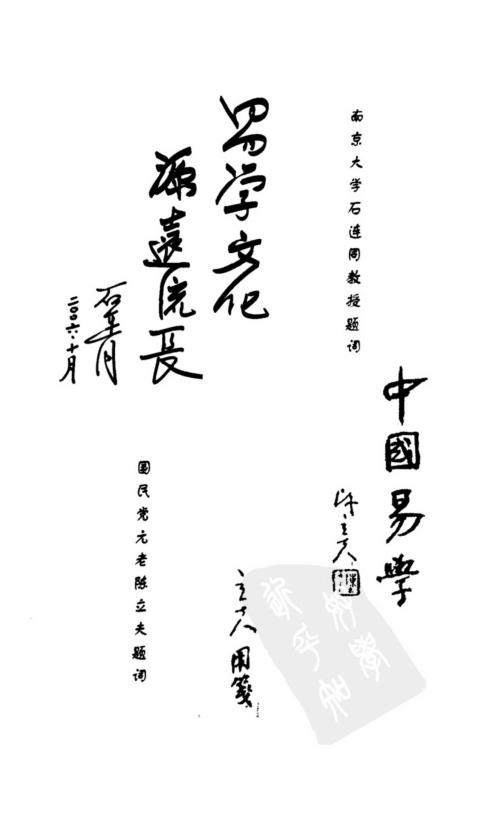 南京大学石连同教授题词
易学文化
源远流长
石连同
二〇〇六·十月
中國易學
陈立夫
立夫用箋
國民党元老陈立夫题词